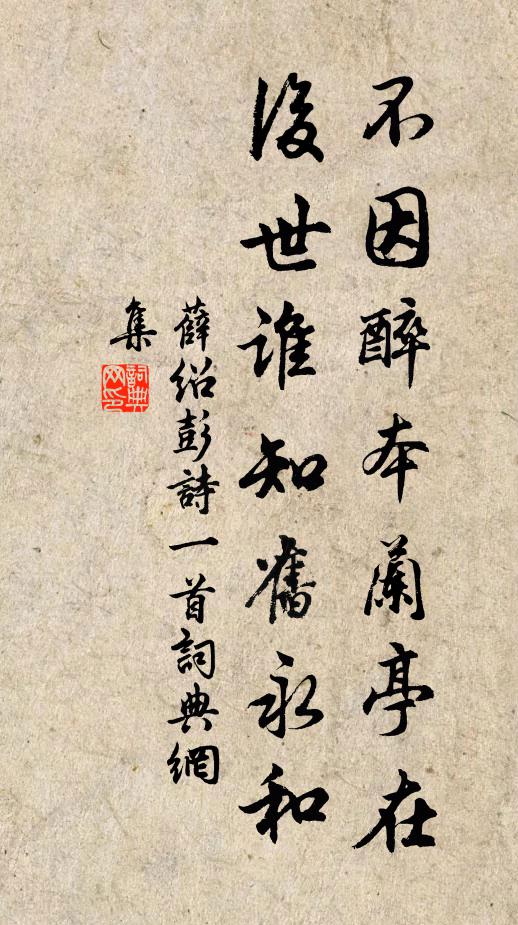 不因醉本蘭亭在
後世誰知舊永和
薛紹彭詩一首詞典網
集
詞典網印